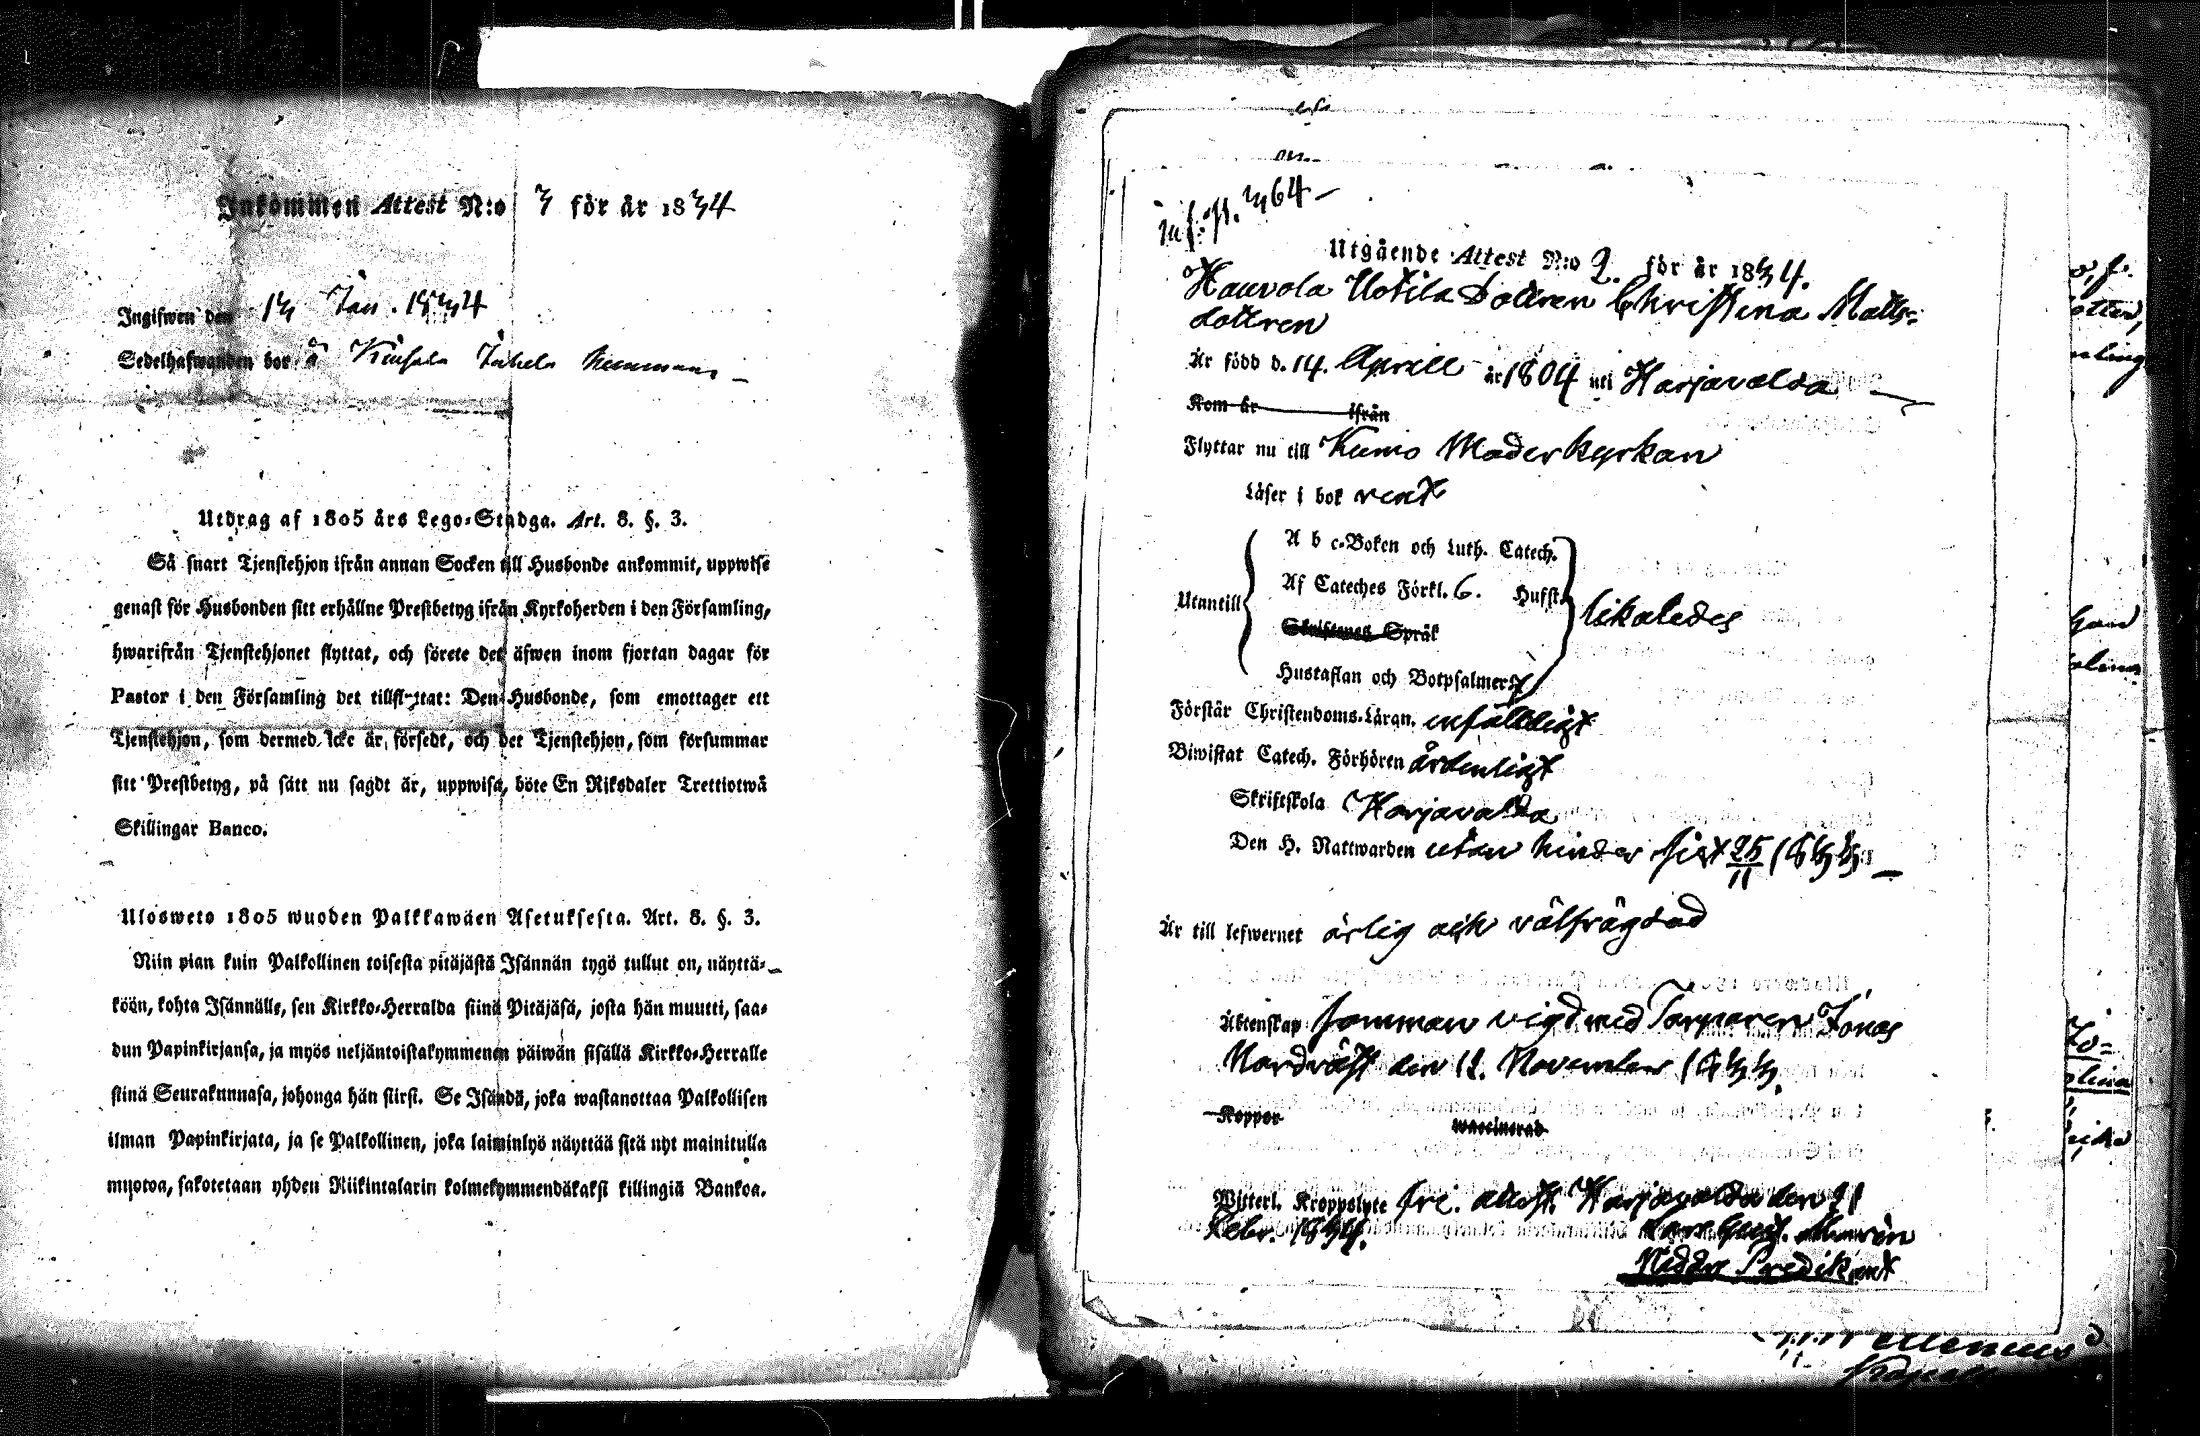 Inkommen Attest N:o 3 för år 1834
Ingifwen den 13 Jan. 1834
Sedelhafwanden bor å
Utdrag af 1805 års Lego-Stadga. Art. 8. §. 3.
Så snart Tjenstehjon ifrån annan Socken till Husbonde ankommit, uppwise
genast för Husbonden sitt erhållne Prestbetyg ifrån Kyrkoherden i den Församling,
hwarifrån Tjenstehjonet flyttat, och förete det äfwen inom fjortan dagar för
Pastor i den Församling det tillflyttat: Den Husbonde, som emottager ett
Tjenstehjon, som dermed icke är försedt, och det Tjenstehjon, som försummar
sitt Prestbetyg, på sätt nu sagdt är, uppwisa, böte En Riksdaler Trettiotwå
Skillingar Banco.
Ulosweto 1805 wuoden Palkkawäen Asetuksesta. Art. 8. §. 3.
Niin pian kuin Palkollinen toisesta pitäjästä Isännän tygö tullut on, näyttä-
köön, kohta Isännälle, sen Kirkko-Herralda siinä Pitäjäsä, josta hän muutti, saa-
dun Papinkirjansa, ja myös neljäntoistakymmenen päiwän sisällä Kirkko-Herralle
siinä Seurakunnasa, johonga hän siirsi. Se Isändä, joka wastanottaa Palkollisen
ilman Papinkirjata, ja se Palkollinen, joka laiminlyö näyttää sitä nyt mainitulla
muotoa, sakotetaan yhden Riikintalarin kolmekymmendäkaksi killingiä Bankoa.
364
Utgående Attest N:o 2. för år 1834.
Haurola Uotila Dottren Christina Matts-
dottren
Är född d. 14. Aprill år 1804 uti Harjavalda
Kom år ifrån
Flyttar nu till Kumo Moderkyrkan
Läser i bok rent
Utantill
A b c-Boken och Luth. Catech.
Af Cateches Förkl. 6. Hufst.
Skriftenes Språk
Hustaflan och Botpsalmer
likaledes
Förstår Christendoms-Läran. enfaldeligt
Biwistat Catech. Förhören årdenligt
Skriftskola Harjavalda
Den H. Nattwarden utan hinder sist 25/11 1833
Är till lefwernet ärlig ock välfrägdad
Äktenskap Samman vigd med Torparen Jonas
Nordqvist den 12. November 1833.
Koppor waccinerad
Witterl. Kroppslyte fri. attest. Harjavalda den 21
Febr. 1834.
Predikant